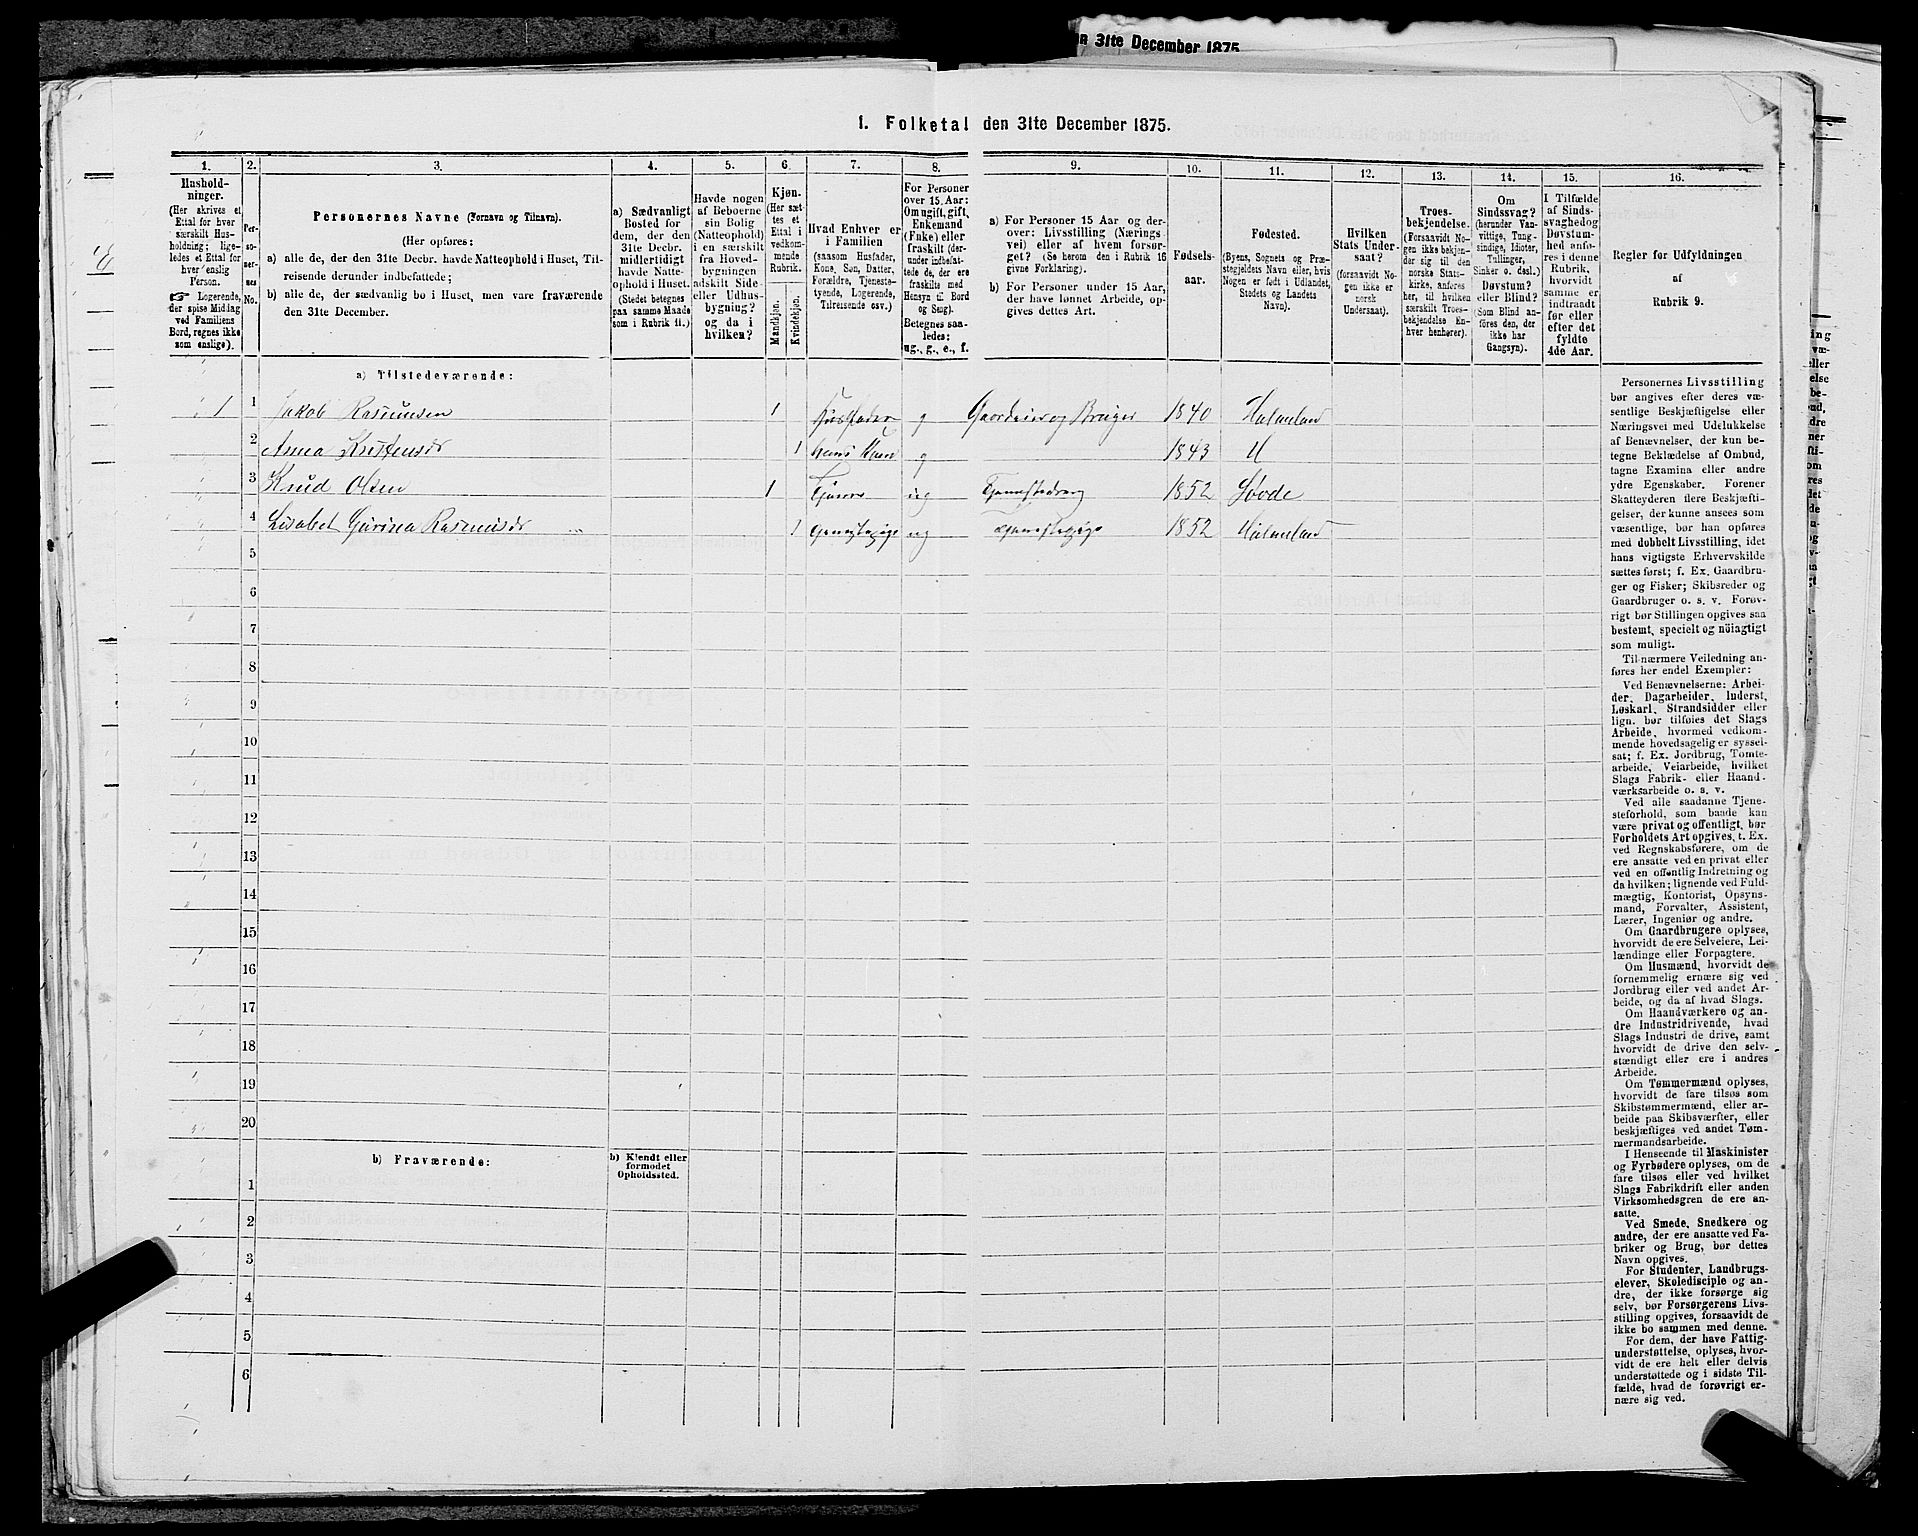 n 31te December 1875
1. Folketal den 31te December 1875.
1. 2. 3. 4. 5. 6. 7. 8. 9. 10. 11. 12. 13. 14. 15. 16.
Hushold-
ninger.
(Her skrives et
Ettal for hver
særskilt Hus-
holdning; lige-
ledes et Ettal for
hver enslig
Person.
☞ Logerende,
der spise Middag
ved Familiens
Bord, regnes ikke
som enslige).
Per-
so-
ner-
nes
No.
Personernes Navne (Fornavn og Tilnavn).
(Her opføres:
a) alle de, der den 31te Decbr. havde Natteophold i Huset, Til-
reisende derunder indbefattede;
b) alle de, der sædvanlig bo i Huset, men vare fraværende
den 31te December.
a) Sædvanligt
Bosted for
dem, der den
31te Decbr.
midlertidigt
havde Natte-
ophold i Huset.
(Stedet betegnes
paa samme Maade
som i Rubrik 11.)
Havde nogen
af Beboerne
sin Bolig
(Natteophold)
i en særskilt
fra Hoved-
bygningen
adskilt Side-
eller Udhus-
bygning?
og da i
hvilken?
Kjøn.
(Her sæt-
tes et
Ettal i
vedkom-
mende
Rubrik.
Mandkjøn.
Kvindekjøn.
Hvad Enhver er
i Familien
(saasom Husfader,
Kone, Søn, Datter,
Forældre, Tjeneste-
tyende, Logerende,
Tilreisende osv.)
For Personer
over 15 Aar:
Om ugift, gift,
Enkemand
(Enke) eller
fraskilt (der-
under indbefat-
tede de, der ere
fraskilte med
Hensyn til Bord
og Seng).
Betegnes saa-
ledes:
ug., g., e., f.
a) For Personer 15 Aar og der-
over: Livsstilling (Nærings-
vei) eller af hvem forsør-
get? (Se herom den i Rubrik 16
givne Forklaring).
b) For Personer under 15 Aar,
der have lønnet Arbeide, op-
gives dettes Art.
Fødsels-
aar.
Fødested.
(Byens, Sognets og Præ-
stegjeldets Navn eller, hvis
Nogen er født i Udlandet,
Stedets og Landets
Navn).
Hvilken
Stats Under-
saat?
(forsaavidt No-
gen ikke er
norsk
Undersaat).
Troes-
bekjendelse.
(Forsaavidt No-
gen ikke bekjen-
der sig til den
norske Stats-
kirke, anføres
her, til hvilken
særskilt Troes-
bekjendelse En-
hver henhører).
Om
Sindssvag?
(herunder Van-
vittige, Tung-
sindige, Idioter,
Sinker o. desl.)
Døvstum?
eller Blind?
(Som Blind an-
føres den, der
ikke har
Gangsyn).
I Tilfælde
af Sinds-
svaghed og
Døvstum-
hed anfø-
res i denne
Rubrik,
hvorvidt
samme er
indtraadt
før eller
efter det
fyldte
4de Aar.
Regler for Udfyldningen
af
Rubrik 9.
a) Tilstedeværende:
1 1 Jakob Rasmusen 1 Husfader g Gaardeier og Bruger 1840 Halmeland
2 Anna Kristensdr 1 hans Kone g 1843 H
3 Knud Olsen 1 Tjener ug Tjenestedreng 1852 Hovde
4 Lisabet Gurina Rasmusdr 1 Tjenestepige ug Tjenestepige 1852 Halmeland
5
6
7
8
9
10
11
12
13
14
15
16
17
18
19
20
b) Fraværende:
b) Kjendt eller
formodet
Opholdssted.
1
2
3
4
5
6
Personernes Livsstilling
bør angives efter deres væ-
sentlige Beskjæftigelse eller
Næringsvei med Udelukkelse
af Benævnelser, der kun be-
tegne Beklædelse af Ombud,
tagne Examina eller andre
ydre Egenskaber. Forener
Skatteyderen flere Beskjæfti-
gelser, der kunne ansees som
væsentlige, bør han opføres
med dobbelt Livsstilling, idet
hans vigtigste Erhvervskilde
sættes først; f. Ex. Gaardbru-
ger og Fisker; Skibsreder og
Gaardbruger o. s. v. Forøv-
rigt bør Stillingen opgives saa
bestemt, specielt og nöiagtigt
som muligt.
Til nærmere Veiledning an-
føres her endel Exempler:
Ved Benævnelserne: Arbei-
der, Dagarbeider, Inderst,
Løskarl, Strandsidder eller
lign. bør tilføies det Slags
Arbeide, hvormed vedkom-
mende hovedsagelig er syssel-
sat; f. Ex. Jordbrug, Tomte-
arbeide, Veiarbeide, hvilket
Slags Fabrik- eller Haand-
værksarbeide o. s. v.
Ved alle saadanne Tjene-
steforhold, som baade kan
være privat og offentligt, bør
Forholdets Art opgives, t. Ex.
ved Regnskabsførere, om de
ere ansatte ved en privat eller
ved en offentlig Indretning og
da hvilken; lignende ved Fuld-
mægtig, Kontorist, Opsyns-
mand, Forvalter, Assistent,
Lærer, Ingeniør og andre.
Om Gaardbrugere oplyses,
hvorvidt de ere Selveiere, Lei-
lændinge eller Forpagtere.
Om Husmænd, hvorvidt de
fornemmelig ernære sig ved
Jordbrug eller ved andet Ar-
beide, og da af hvad Slags.
Om Haandværkere og an-
dre Industridrivende, hvad
Slags Industri de drive, samt
hvorvidt de drive den selv-
stændigt eller ere i andres
Arbeide.
Om Tømmermænd oplyses,
hvorvidt de fare tilsøs som
Skibstømmermænd, eller ar-
beide paa Skibsværfter, eller
beskjæftiges ved andet Tøm-
mermandsarbeide.
I Henseende til Maskinister
og Fyrbødere oplyses, om de
fare tilsøs eller ved hvilket
Slags Fabrikdrift eller anden
Virksomhedsgren de ere an-
satte.
Ved Smede, Snedkere og
andre, der ere ansatte ved Fa-
briker og Brug, bør dettes
Navn opgives.
For Studenter, Landbrugs-
elever, Skoledisciple og an-
dre, der ikke forsørge sig
selv, bør Forsørgerens Livs-
stilling opgives, forsaavidt de
ikke bo sammen med denne.
For dem, der have Fattig-
understøttelse, oplyses, hvor-
vidt de ere helt eller delvis
understøttede og i sidste Til-
fælde, hvad de forøvrigt er-
nære sig ved.